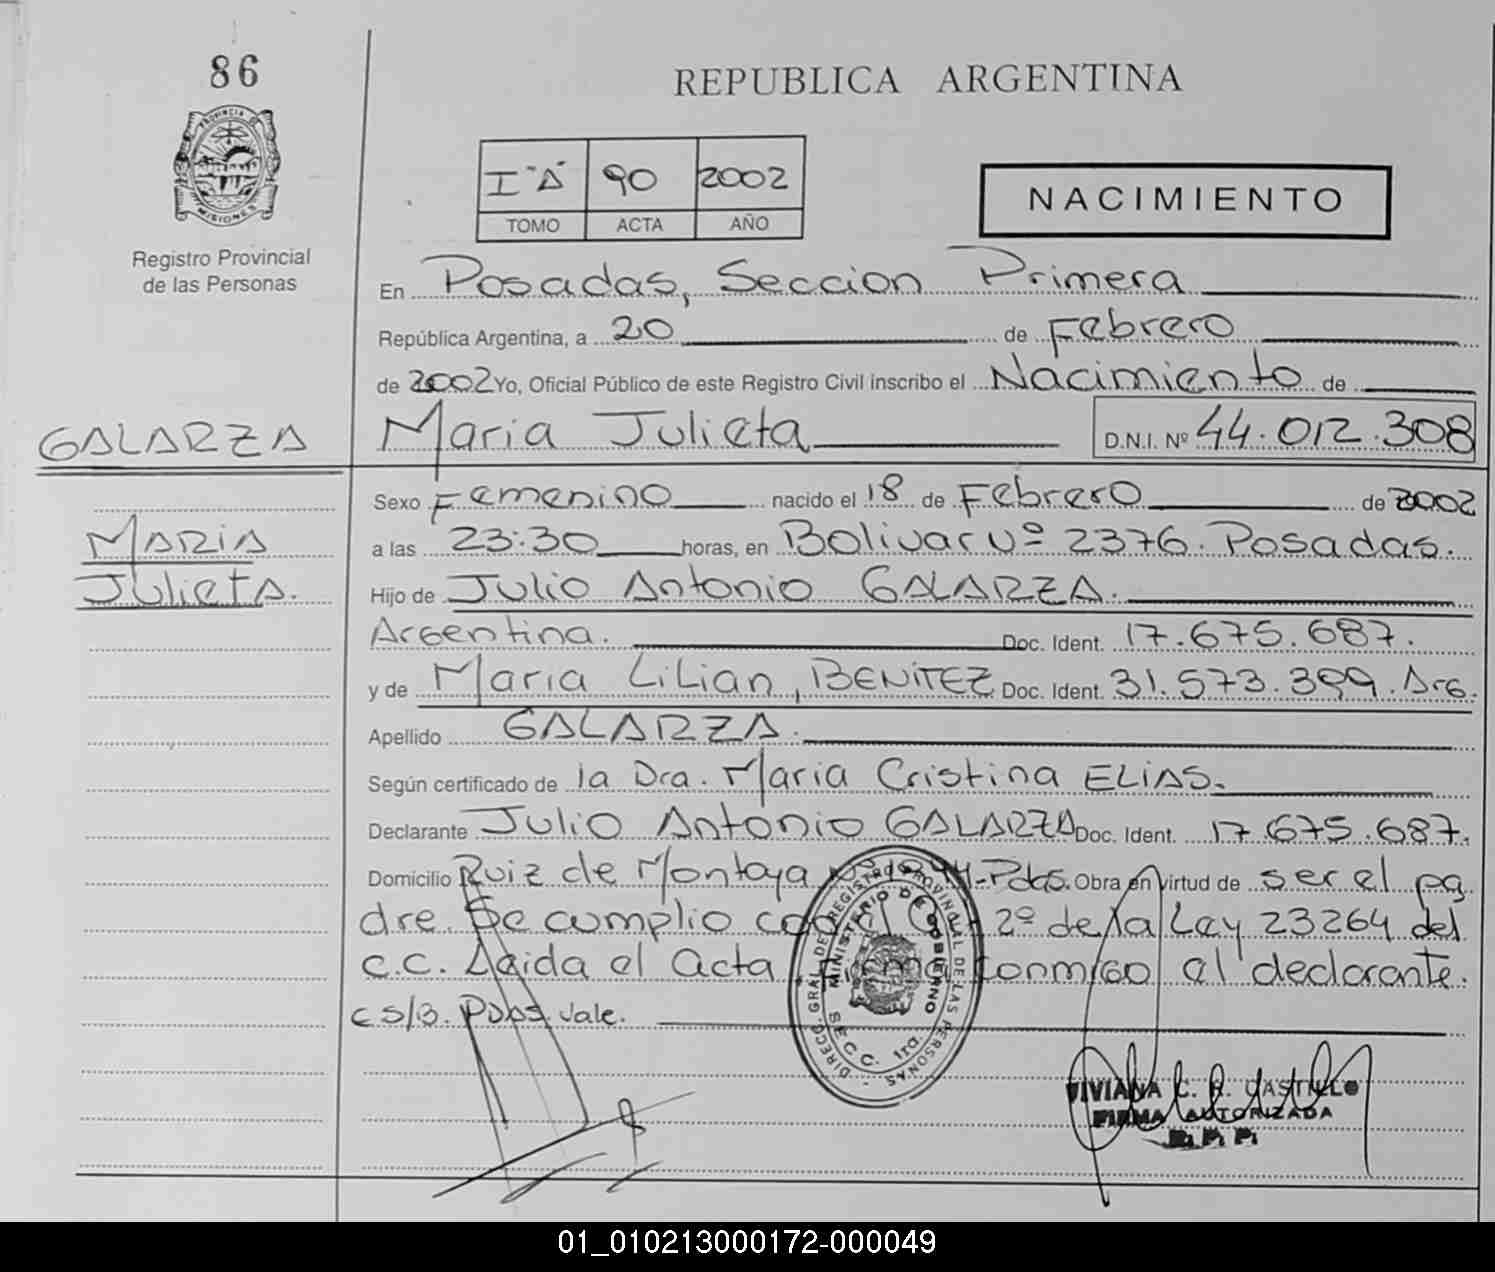 86
PROVINCIA DE
MISIONES
Registro Provincial
de las Personas
REPUBLICA ARGENTINA
I "A" 90 2002
TOMO ACTA AÑO
NACIMIENTO
En Posadas, Seccion Primera
República Argentina, a 20 de Febrero
de 2002 Yo, Oficial Público de este Registro Civil inscribo el Nacimiento de
GALARZA Maria Julieta D.N.I. Nº 44.012.308
Sexo Femenino nacido el 18 de Febrero de 2002
MARIA a las 23:30 horas, en Bolivar Nº 2376. Posadas.
JULIETA. Hijo de Julio Antonio GALARZA.
Argentina. Doc. Ident. 17.675.687.
y de Maria Lilian, BENITEZ Doc. Ident. 31.573.399. Arg.
Apellido GALARZA.
Según certificado de la Dra. Maria Cristina ELIAS.
Declarante Julio Antonio GALARZA Doc. Ident. 17.675.687.
Domicilio Ruiz de Montoya Pdas. Obra en virtud de ser el pa
dre. Se cumplio con el 2º de la Ley 23264 del
c.c. Leida el Acta conmigo el declarante.
C S/B. PDAS. Vale.
DIRECC. GRAL. DE REGISTRO PROVINCIAL DE LAS PERSONAS
MINISTERIO DE GOBIERNO
SECC. 1ra.
VIVIANA C. R. CASTILLO
FIRMA AUTORIZADA
R. P. P.
01_010213000172-000049